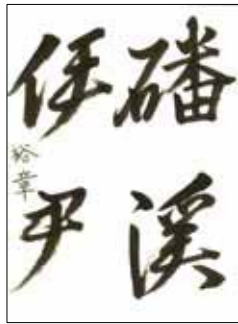 磻溪
伊尹
裕章